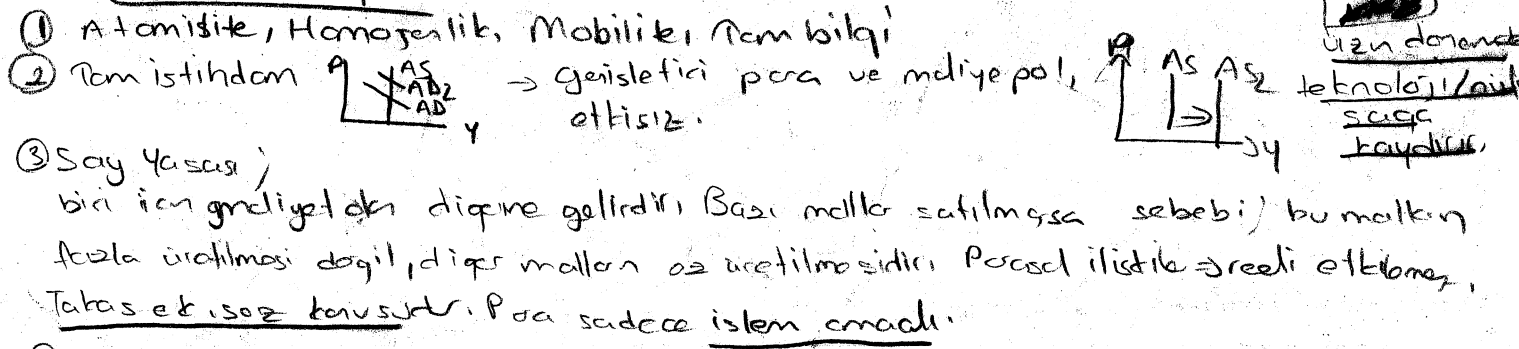 ① Atomisite, Homojenlik, Mobilite, Tam bilgi
② Tam istihdam P AS AD2 AD Y → genişletici para ve maliye pol, etkisiz. P AS AS2 Y uzun dönemde teknoloji/nüf sağa kaydırır.
③ Say Yasası;
biri için maliyet olan diğerine gelirdir, Bazı mallar satılmassa sebebi; bu malların
fazla üretilmesi değil, diğer malların az üretilmesidir, Parasal ilistik → reeli etkilemez,
Takas ek. söz konusudur. Para sadece işlem amaçlı.